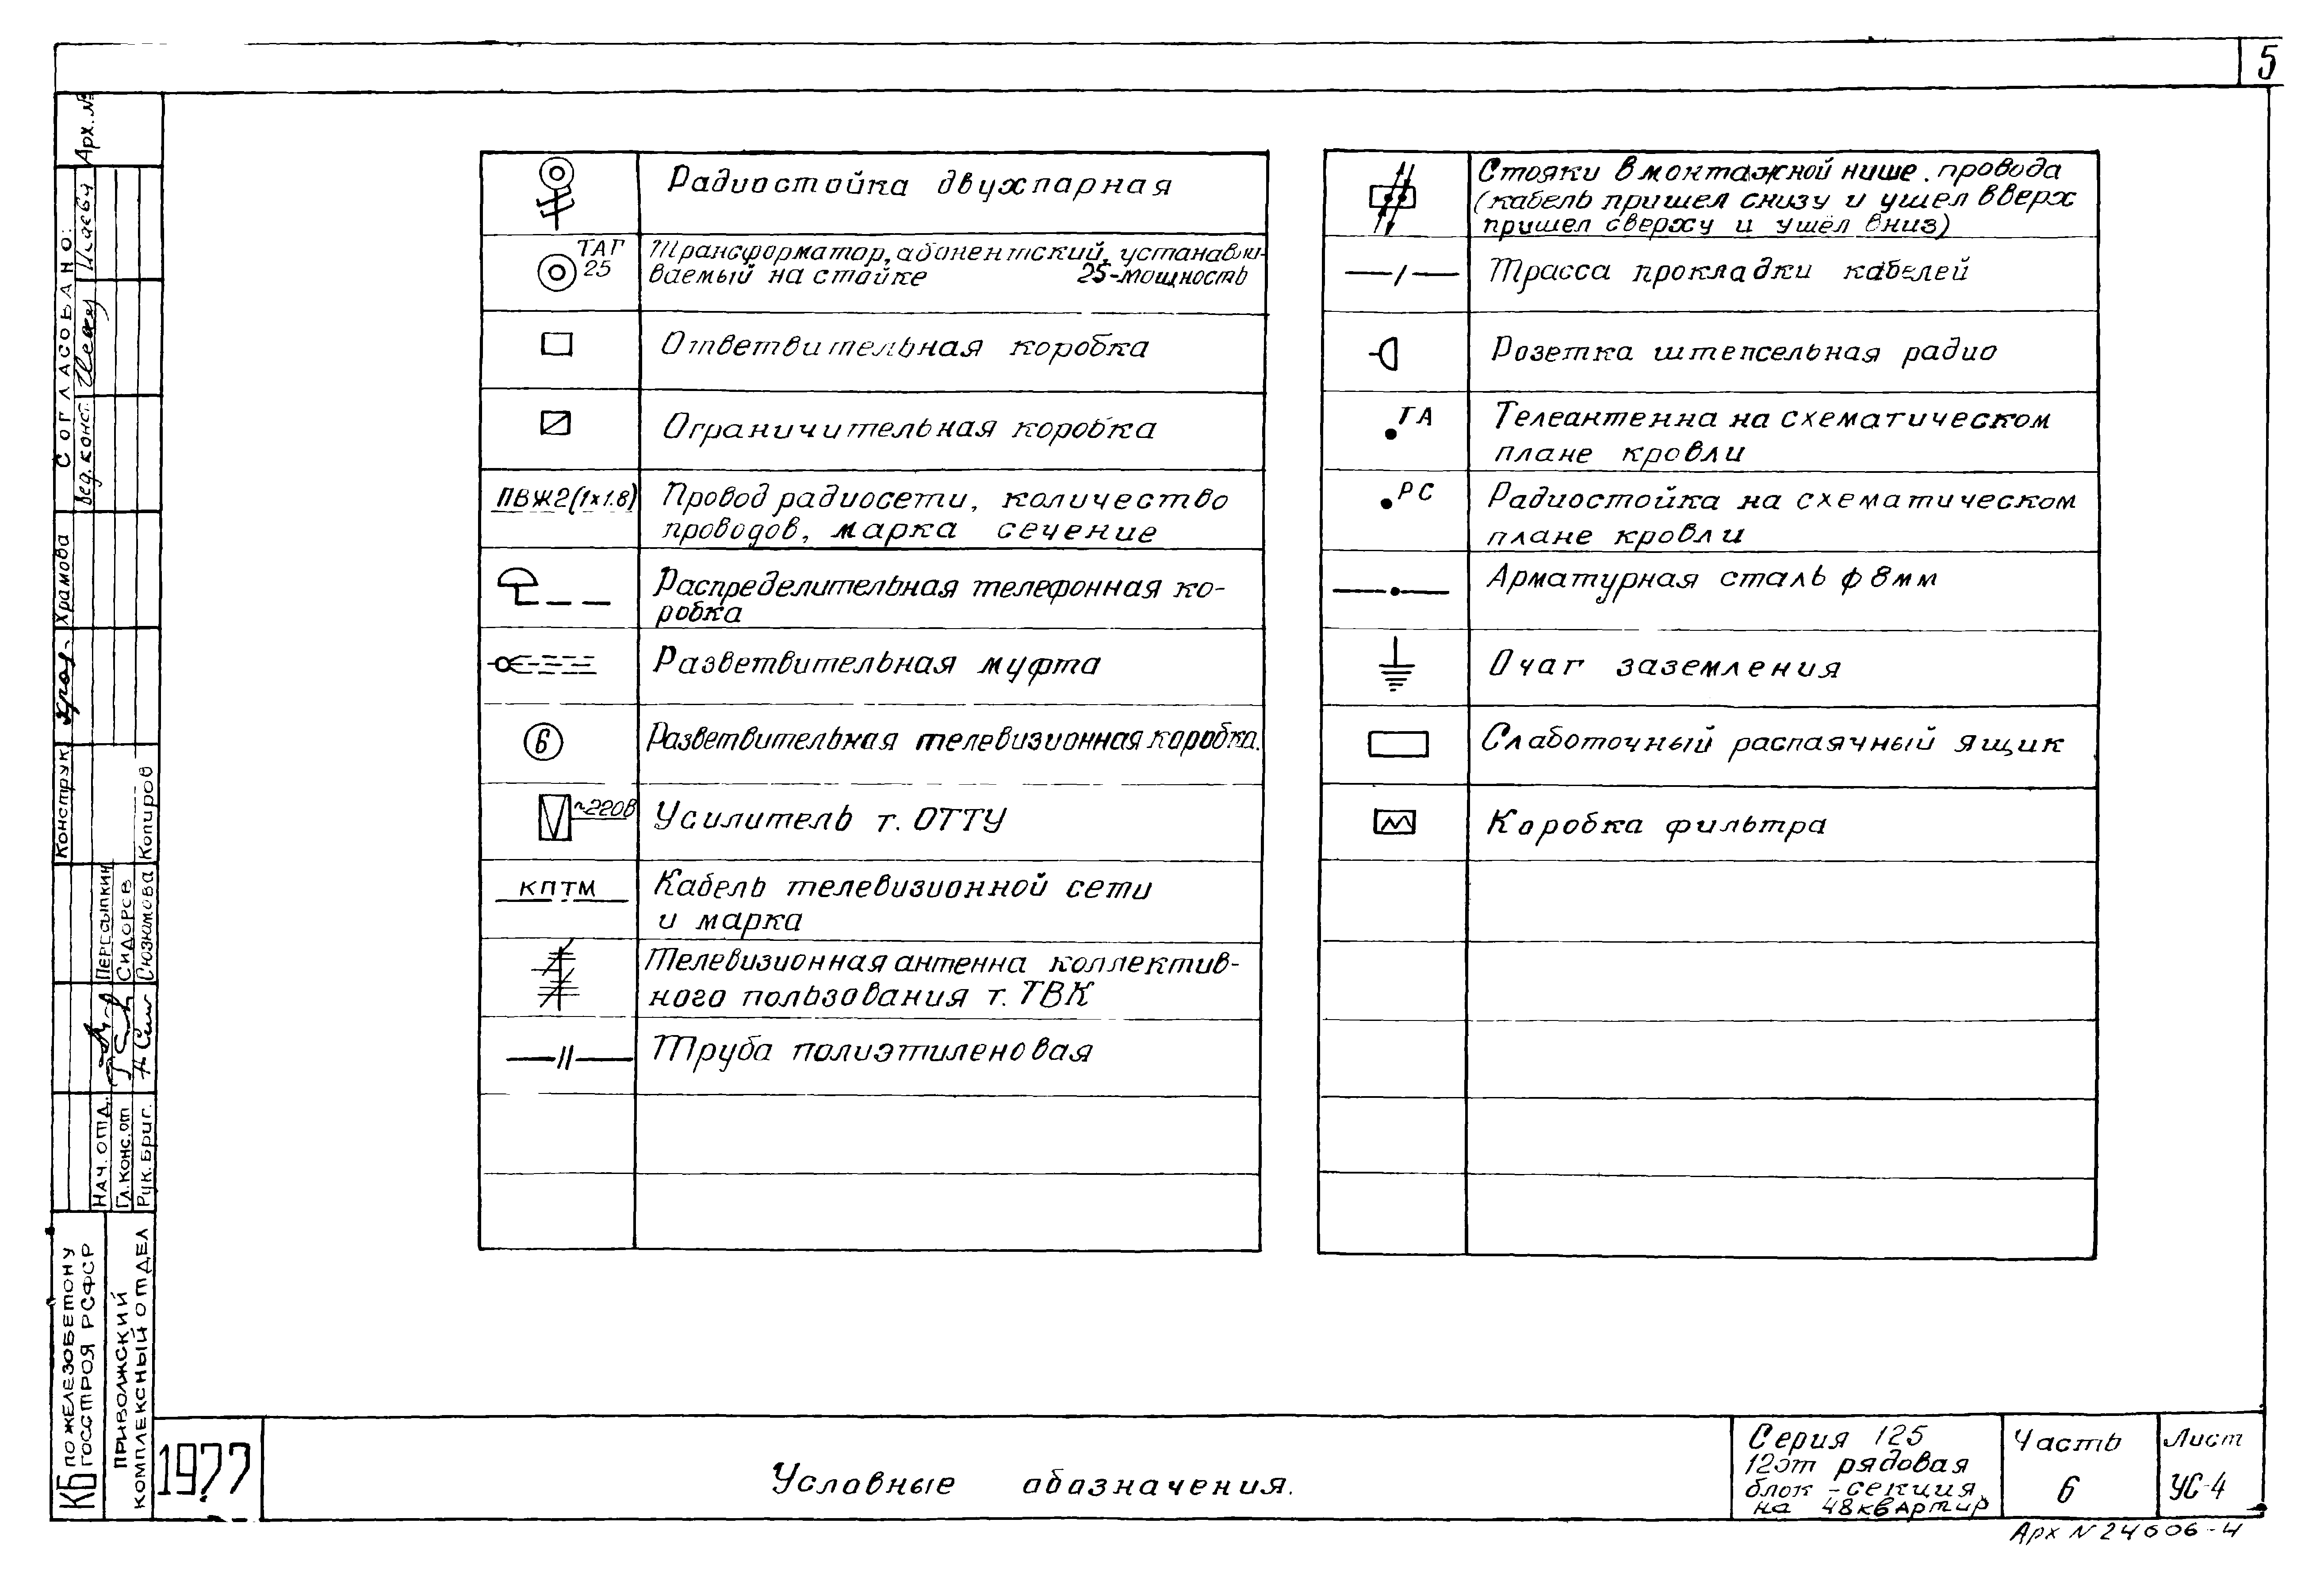 5
Радиостойка двухпарная
ТАГ
25
Трансформатор, абонентский, устанавли-
ваемый на стойке 25-мощность
Ответвительная коробка
Ограничительная коробка
ПВЖ2(1х1.8)
Провод радиосети, количество
проводов, марка сечение
Распределительная телефонная ко-
робка
Разветвительная муфта
6
Разветвительная телевизионная коробка.
~220В
Усилитель т. ОТТУ
КПТМ
Кабель телевизионной сети
и марка
Телевизионная антенна коллектив-
ного пользования т. ТВК
Труба полиэтиленовая
Стояки в монтажной нише. провода
(кабель пришел снизу и ушел вверх
пришел сверху и ушёл вниз)
Трасса прокладки кабелей
Розетка штепсельная радио
ТА
Телеантенна на схематическом
плане кровли
РС
Радиостойка на схематическом
плане кровли
Арматурная сталь ф 8мм
Очаг заземления
Слаботочный распаячный ящик
Коробка фильтра
Арх. №
Согласовано:
Вед. конст.
Исаевч
Конструк.
Храмова
Копиров
Нач. отд.
Пересыпкин
Гл. конс. от
Сидоров
Рук. бриг.
Сюзюмова
КБ по железобетону
Госстроя РСФСР
Приволжский
комплексный отдел
1977
Условные обозначения.
Серия 125
12эт рядовая
блок-секция
на 48 квартир
Часть
6
Лист
УС-4
Арх N 24606-4